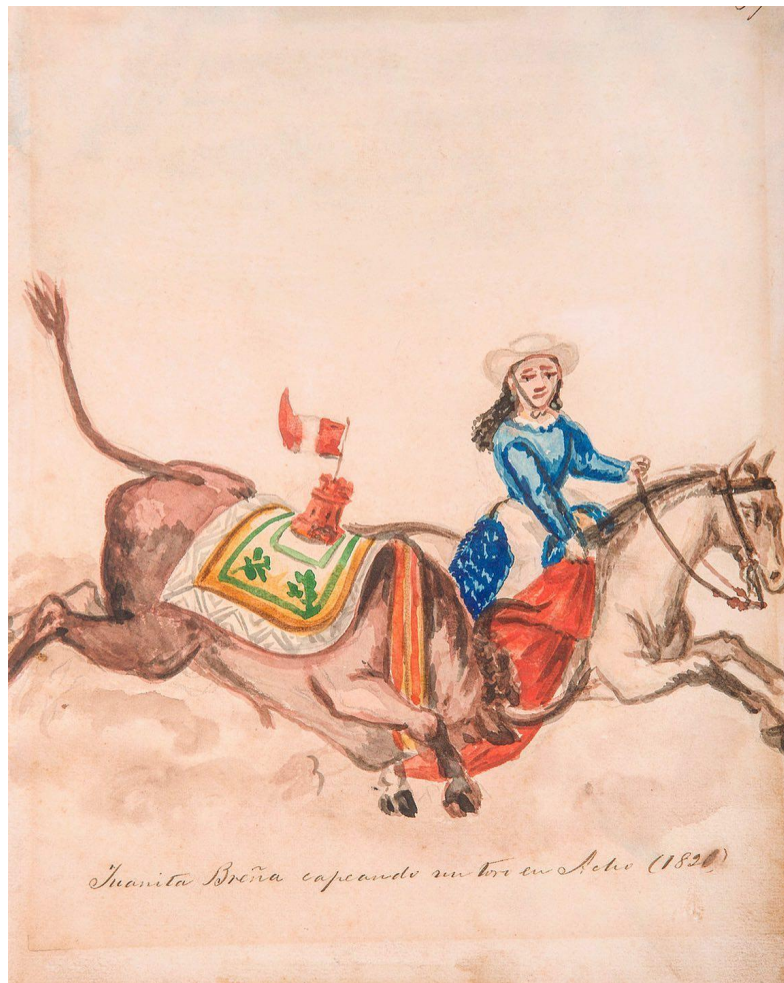 Juanita Breña capeando un toro en Acho (1820)